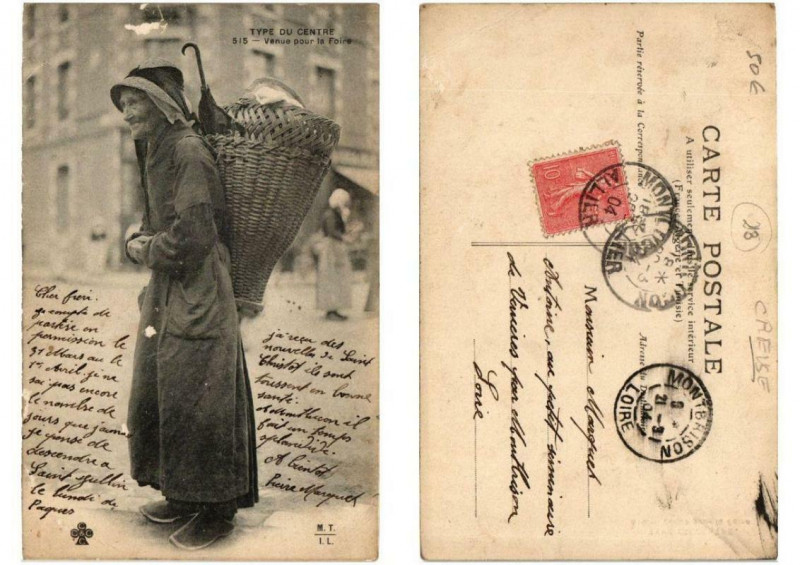 TYPE DU CENTRE
515 — Venue pour la Foire
Cher frère.
je compte de
partir en
permission le
31 Mars au le
1er Avril. je ne
sai pas encore
le nombre de
jours que j'aurai
je pense de
descendre a
Saint
le lundi de
Paques
j'ai reçu des
nouvelles de Saint
ils sont
toussent en bonne
santé.
A il
fait un temps
splendide.
A bientôt
Pierre Marquet
C
C C C
M. T.
I. L.
CARTE POSTALE
A utiliser seulement service intérieur
(France, Algérie et Tunisie)
Partie réservée à la Correspondance
10
MONTLUÇON
ALLIER
04
MONTBRISON
LOIRE
21 -3
04
Monsieur Marquet
Antoine, au petit séminaire
de Verrières par Montbrison
Loire
50€
23
CREUSE